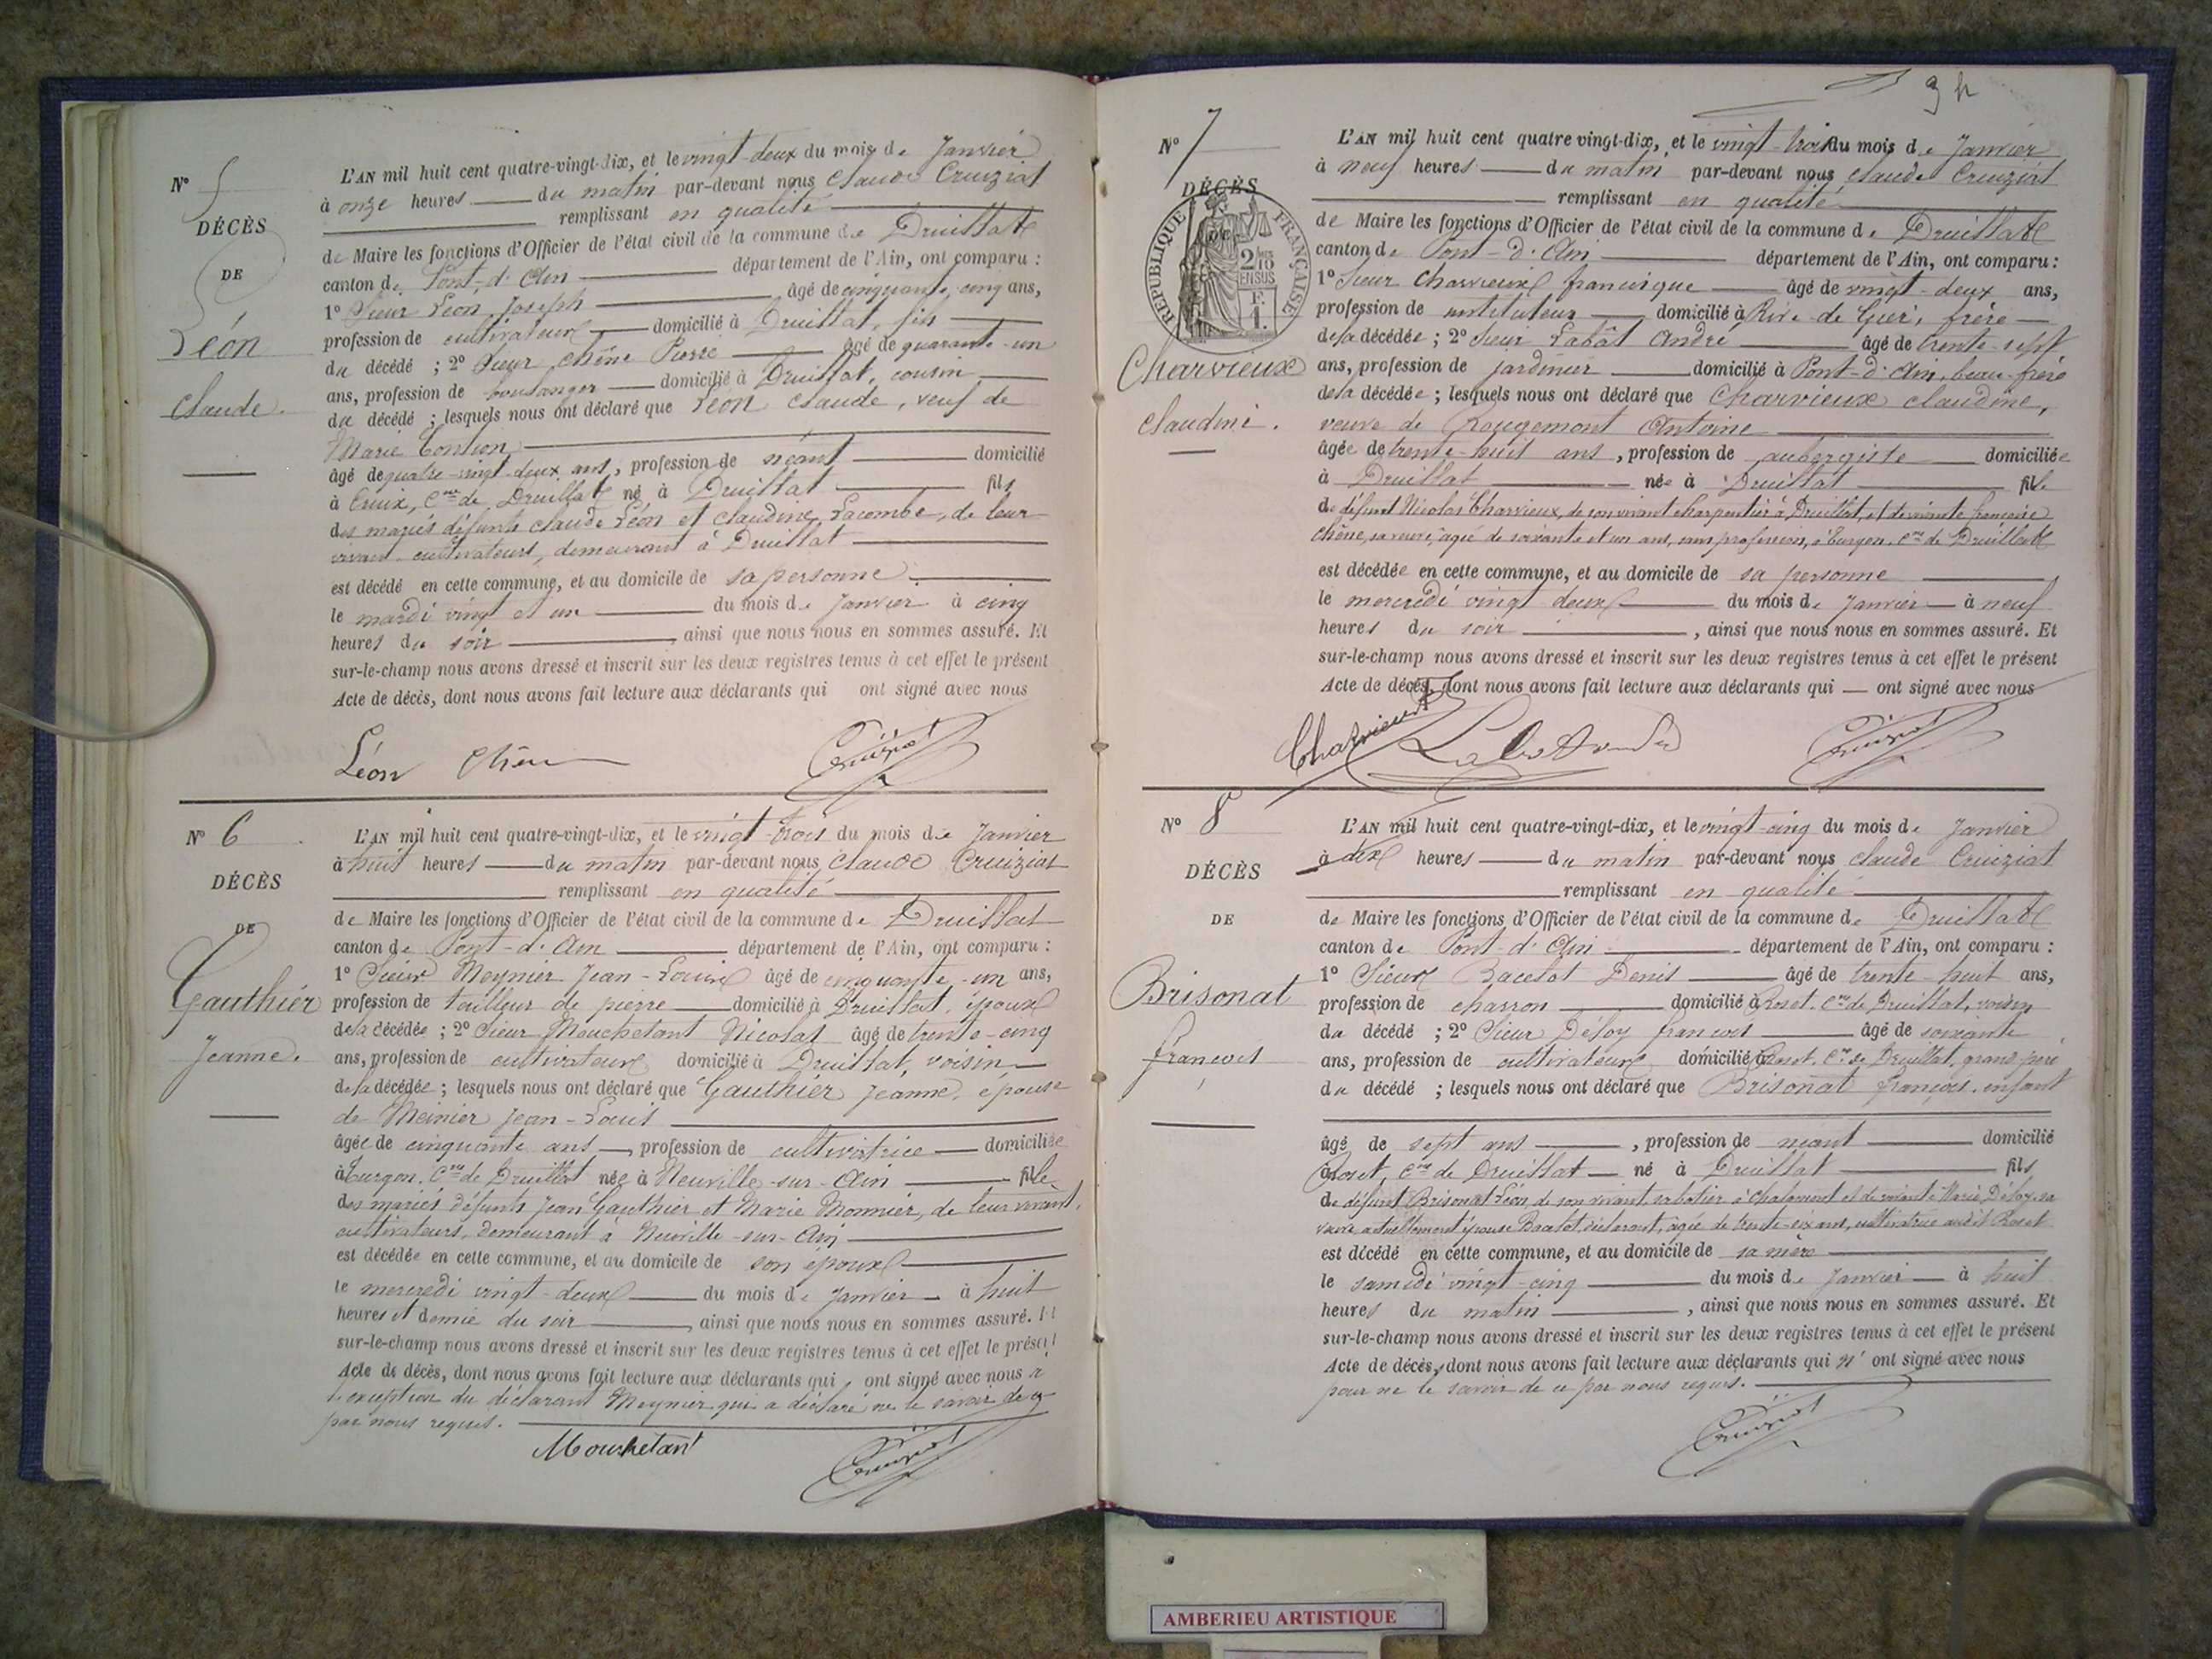 N° 5
DÉCÈS
DE
Léon
Claude.
L'AN mil huit cent quatre-vingt-dix, et le vingt-deux du mois de Janvier
à onze heures du matin par-devant nous Claude Cruiziat
remplissant en qualité
de Maire les fonctions d'Officier de l'état civil de la commune de Druillat
canton de Pont-d'Ain département de l'Ain, ont comparu :
1° Sieur Léon Joseph âgé de cinquante cinq ans,
profession de cultivateur domicilié à Druillat, fils
du décédé ; 2° Sieur Chêne Pierre âgé de quarante-un
ans, profession de boulanger domicilié à Druillat, cousin
du décédé ; lesquels nous ont déclaré que Léon Claude, veuf de
Marie
âgé de quatre-vingt-deux ans, profession de néant domicilié
à Cruix, Cne de Druillat né à Druillat fils
des mariés défunts Claude Léon et Claudine Lacombe, de leur
vivant cultivateurs, demeurant à Druillat
est décédé en cette commune, et au domicile de sa personne
le mardi vingt et un du mois de Janvier à cinq
heures du soir, ainsi que nous nous en sommes assuré. Et
sur-le-champ nous avons dressé et inscrit sur les deux registres tenus à cet effet le présent
Acte de décès, dont nous avons fait lecture aux déclarants qui ont signé avec nous
Léon Chêne Cruiziat
N° 6
DÉCÈS
DE
Gauthier
Jeanne.
L'AN mil huit cent quatre-vingt-dix, et le vingt-trois du mois de Janvier
à huit heures du matin par-devant nous Claude Cruiziat
remplissant en qualité
de Maire les fonctions d'Officier de l'état civil de la commune de Druillat
canton de Pont-d'Ain département de l'Ain, ont comparu :
1° Sieur Meynier Jean-Louis âgé de cinquante-un ans,
profession de tailleur de pierre domicilié à Druillat, époux
de la décédée ; 2° Sieur Mouchetant Nicolas âgé de trente-cinq
ans, profession de cultivateur domicilié à Druillat, voisin
de la décédée ; lesquels nous ont déclaré que Gauthier Jeanne, épouse
de Meinier Jean-Louis
âgée de cinquante ans, profession de cultivatrice domiciliée
à Turgon, Cne de Druillat née à Neuville-sur-Ain fille
des mariés défunts Jean Gauthier et Marie Monnier, de leur vivant,
cultivateurs, demeurant à Neuville-sur-Ain
est décédée en cette commune, et au domicile de son époux
le mercredi vingt-deux du mois de Janvier à huit
heures et demie du soir, ainsi que nous nous en sommes assuré. Et
sur-le-champ nous avons dressé et inscrit sur les deux registres tenus à cet effet le présent
Acte de décès, dont nous avons fait lecture aux déclarants qui ont signé avec nous à
l'exception du déclarant Meynier qui a déclaré ne le savoir de ce
par nous requis.
Mouchetant Cruiziat
9 h
N° 7
DÉCÈS
RÉPUBLIQUE FRANÇAISE
2/10 EN SUS
F. 1.
Charvieux
Claudine.
L'AN mil huit cent quatre vingt-dix, et le vingt-trois du mois de Janvier
à neuf heures du matin par-devant nous Claude Cruiziat
remplissant en qualité
de Maire les fonctions d'Officier de l'état civil de la commune de Druillat
canton de Pont-d'Ain département de l'Ain, ont comparu :
1° Sieur Charvieux Francisque âgé de vingt-deux ans,
profession de instituteur domicilié à Rive-de-Gier, frère
de la décédée ; 2° Sieur Labât André âgé de trente-sept
ans, profession de jardinier domicilié à Pont-d'Ain, beau-frère
de la décédée ; lesquels nous ont déclaré que Charvieux Claudine,
veuve de Rougemont Antoine
âgée de trente-huit ans, profession de aubergiste domiciliée
à Druillat née à Druillat fille
de défunt Nicolas Charvieux, de son vivant charpentier à Druillat, et de vivante Françoise
Chêne, sa veuve, âgée de soixante et un ans, sans profession, à Turgon, Cne de Druillat
est décédée en cette commune, et au domicile de sa personne
le mercredi vingt deux du mois de Janvier à neuf
heures du soir, ainsi que nous nous en sommes assuré. Et
sur-le-champ nous avons dressé et inscrit sur les deux registres tenus à cet effet le présent
Acte de décès, dont nous avons fait lecture aux déclarants qui ont signé avec nous
Charvieux Labat André Cruiziat
N° 8
DÉCÈS
DE
Brisonat
François
L'AN mil huit cent quatre-vingt-dix, et le vingt-cinq du mois de Janvier
à dix heures du matin par-devant nous Claude Cruiziat
remplissant en qualité
de Maire les fonctions d'Officier de l'état civil de la commune de Druillat
canton de Pont-d'Ain département de l'Ain, ont comparu :
1° Sieur Bacelot Denis âgé de trente-huit ans,
profession de charron domicilié à Rozet, Cne de Druillat, voisin
du décédé ; 2° Sieur Déloy François âgé de soixante
ans, profession de cultivateur domicilié à Rozet, Cne de Druillat, grand-père
du décédé ; lesquels nous ont déclaré que Brisonat François, enfant
âgé de sept ans, profession de néant domicilié
à Rozet, Cne de Druillat né à Druillat fils
de défunt Brisonat Léon, de son vivant sabotier à Chalamont et de vivante Marie Déloy, sa
veuve actuellement épouse Bacelot, déclarant, âgée de trente-six ans, cultivatrice audit Rozet
est décédé en cette commune, et au domicile de sa mère
le samedi vingt-cinq du mois de Janvier à huit
heures du matin, ainsi que nous nous en sommes assuré. Et
sur-le-champ nous avons dressé et inscrit sur les deux registres tenus à cet effet le présent
Acte de décès, dont nous avons fait lecture aux déclarants qui n'ont signé avec nous
pour ne le savoir de ce par nous requis.
Cruiziat
AMBERIEU ARTISTIQUE